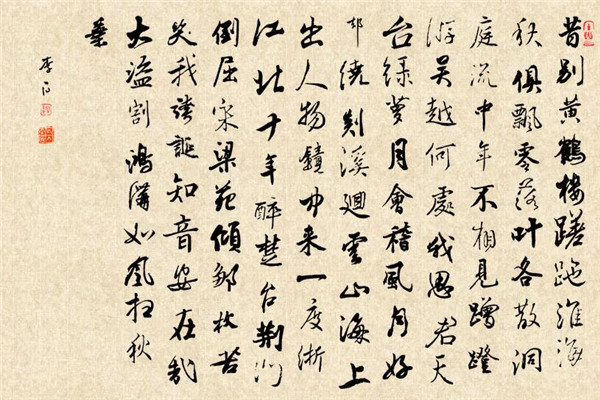 昔别黄鶴楼蹉跎淮海
秋俱飄零落叶各散洞
庭流中年不相見蹭蹬
游吴越何處我思君天
台绿萝月會稽風月好
却繞剡溪迴雲山海上
出人物鏡中来一度浙
江北十年醉楚台荆门
倒屈宋梁苑傾鄒枚苦
笑我誇誕知音安在哉
大盗割鴻溝如風扫秋
葉
李白